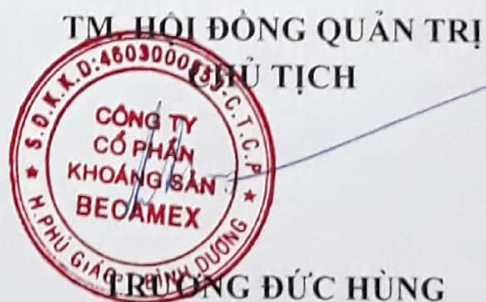 TM. HỘI ĐỒNG QUẢN TRỊ
CHỦ TỊCH
S.Đ.K.K.D:4603000 C.T.C.P
CÔNG TY
CỔ PHẦN
KHOÁNG SẢN
BECAMEX
H.PHÚ GIÁO BÌNH DƯƠNG
TRƯƠNG ĐỨC HÙNG